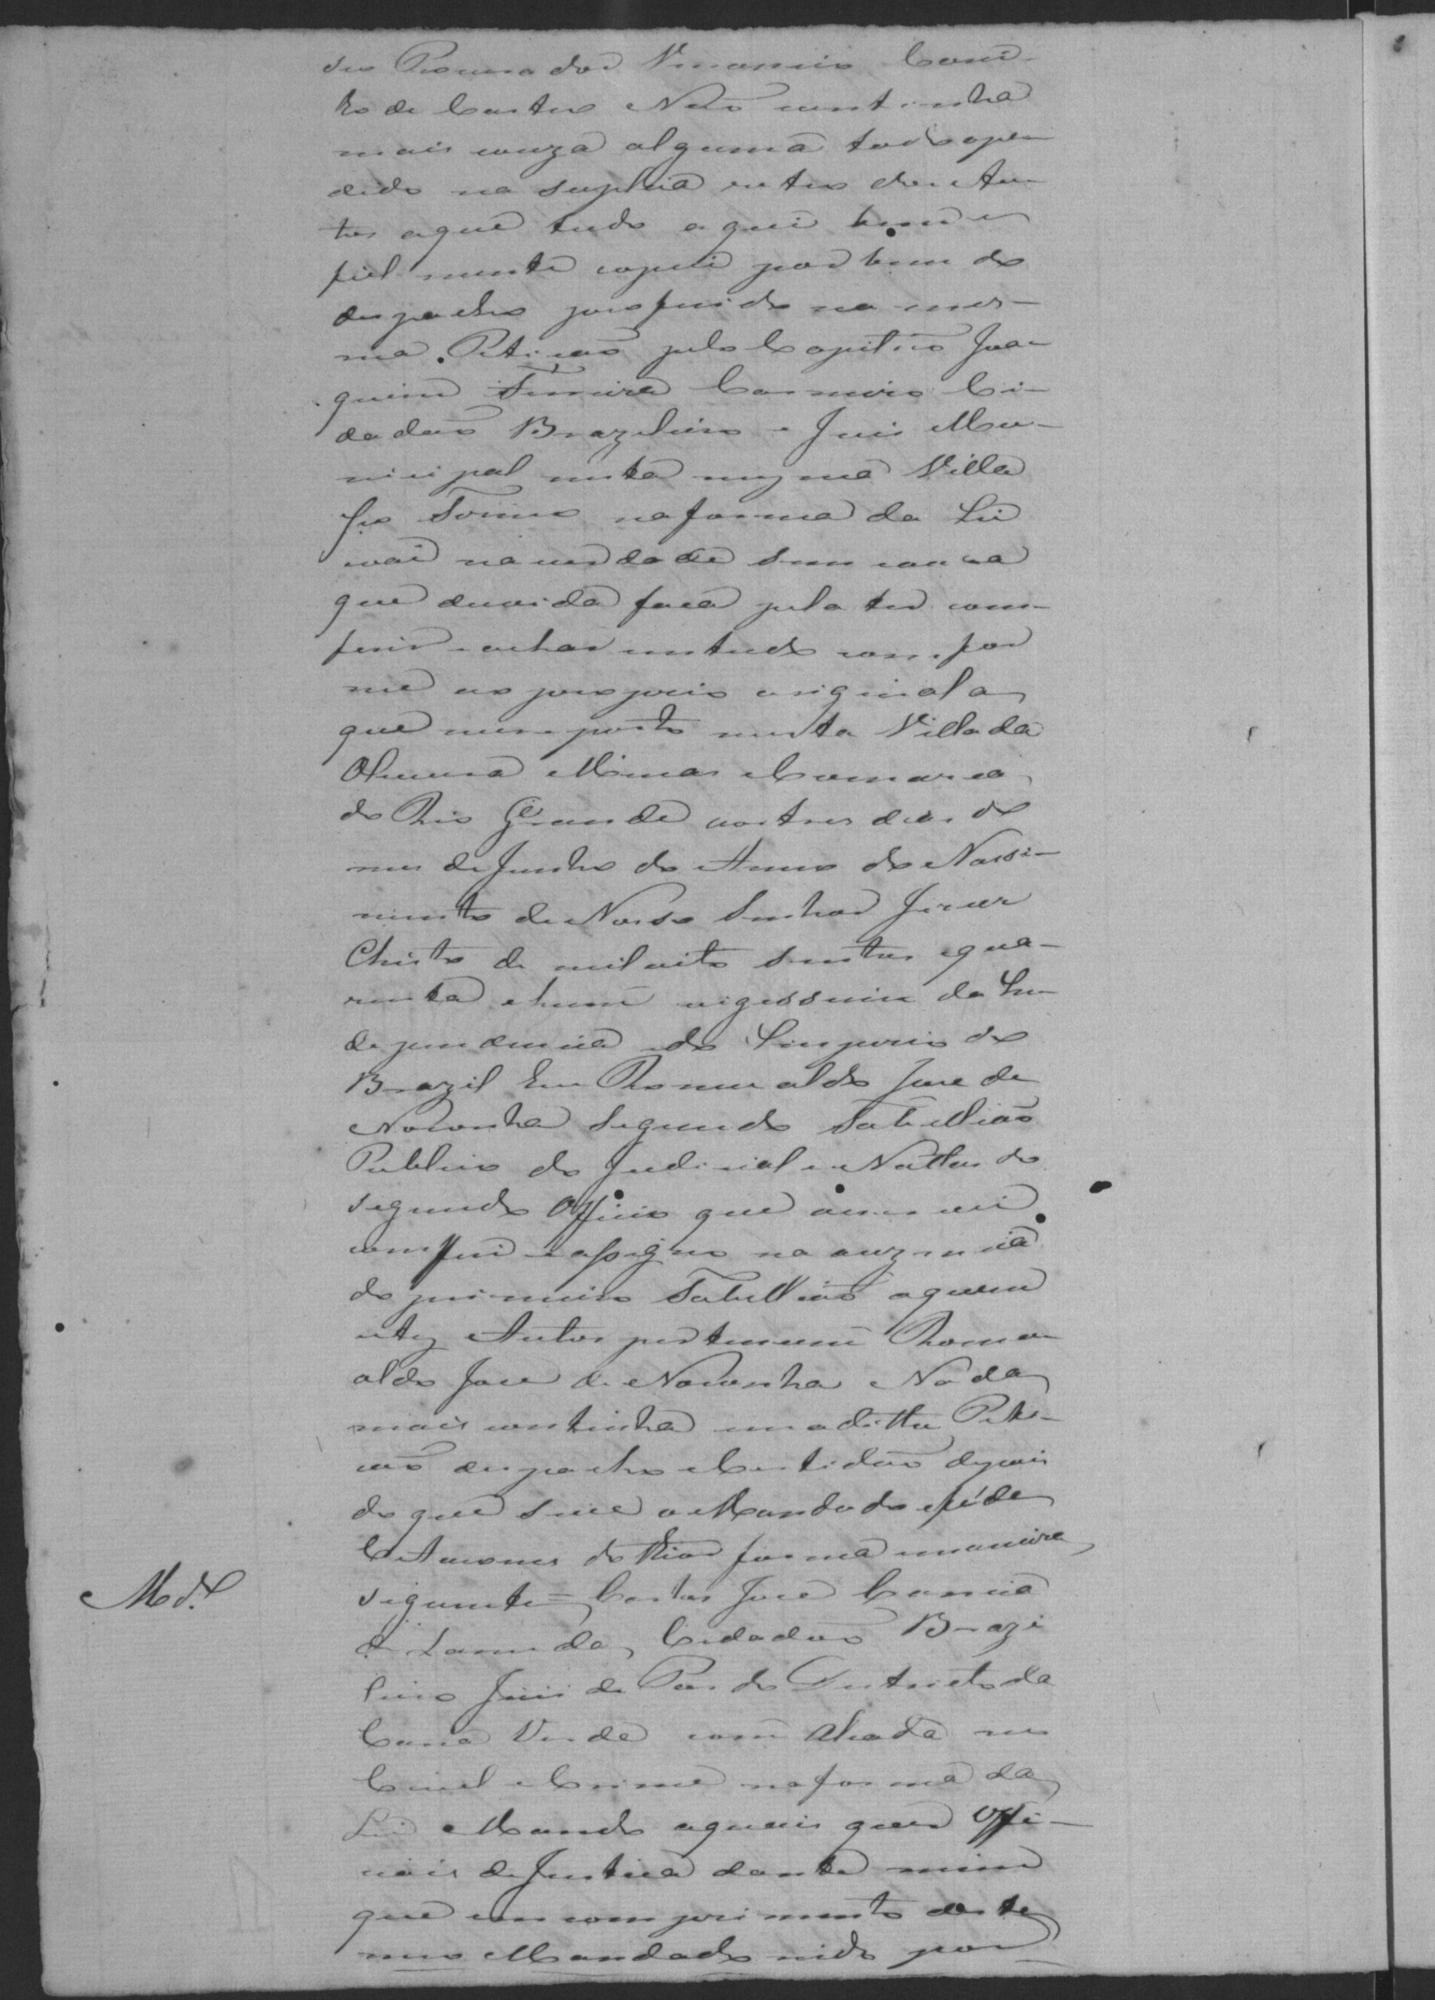 do Procurador Venancio Carnei-
ro de Castro Não continha
mais couza alguma todo ope-
dido na suplica
tes aque tudo aqui bem e
fiel mente copiei por bem do
despacho proferido na mes-
ma Petição pelo Capitão Joa-
quim Ferreira Carneiro Ci-
dadão Brazileiro e Juis Mu-
nicipal nesta mesma Villa
seo Termo na forma da Lei
vai na verdade sem couza
que duvida faça pela ter con-
ferir e achar em tudo confor
me ao proprio original a
que me reporto nesta Villa da
Minas Comarca
do Rio Grande aos tres dias do
mes de Junho do Anno do Nassi-
mento de Nosso Senhor Jezus
Christo de mil oito sentos e qua-
renta e hum vigessimo da In-
dependencia do Imperio do
Brazil Eu Romualdo Jose de
Noronha segundo Tabellião
Publico do Judicial e Nottas do
segundo Officio que escrevi
conferi e assigno na auzencia
do primeiro Tabellião aquem
estes Autos pertencem Romu
aldo Jose de Noronha Nada
mais continha em a ditta Peti-
cão despacho e Certidão depois
do que se ve o Mandado e fé de
Citacoens do theor forma e maneira
seguinte = Carlos Jose Correia
de Lacerda, Cidadão Brazi
leiro Juis de Pas do Destricto da
Canna Verde com Alcada no
Civel e Crime na forma da
Lei Mando aquais quer Offi-
ciais de Justiça dante mim
que em comprimento deste
meo Mandado indo por
Md.º